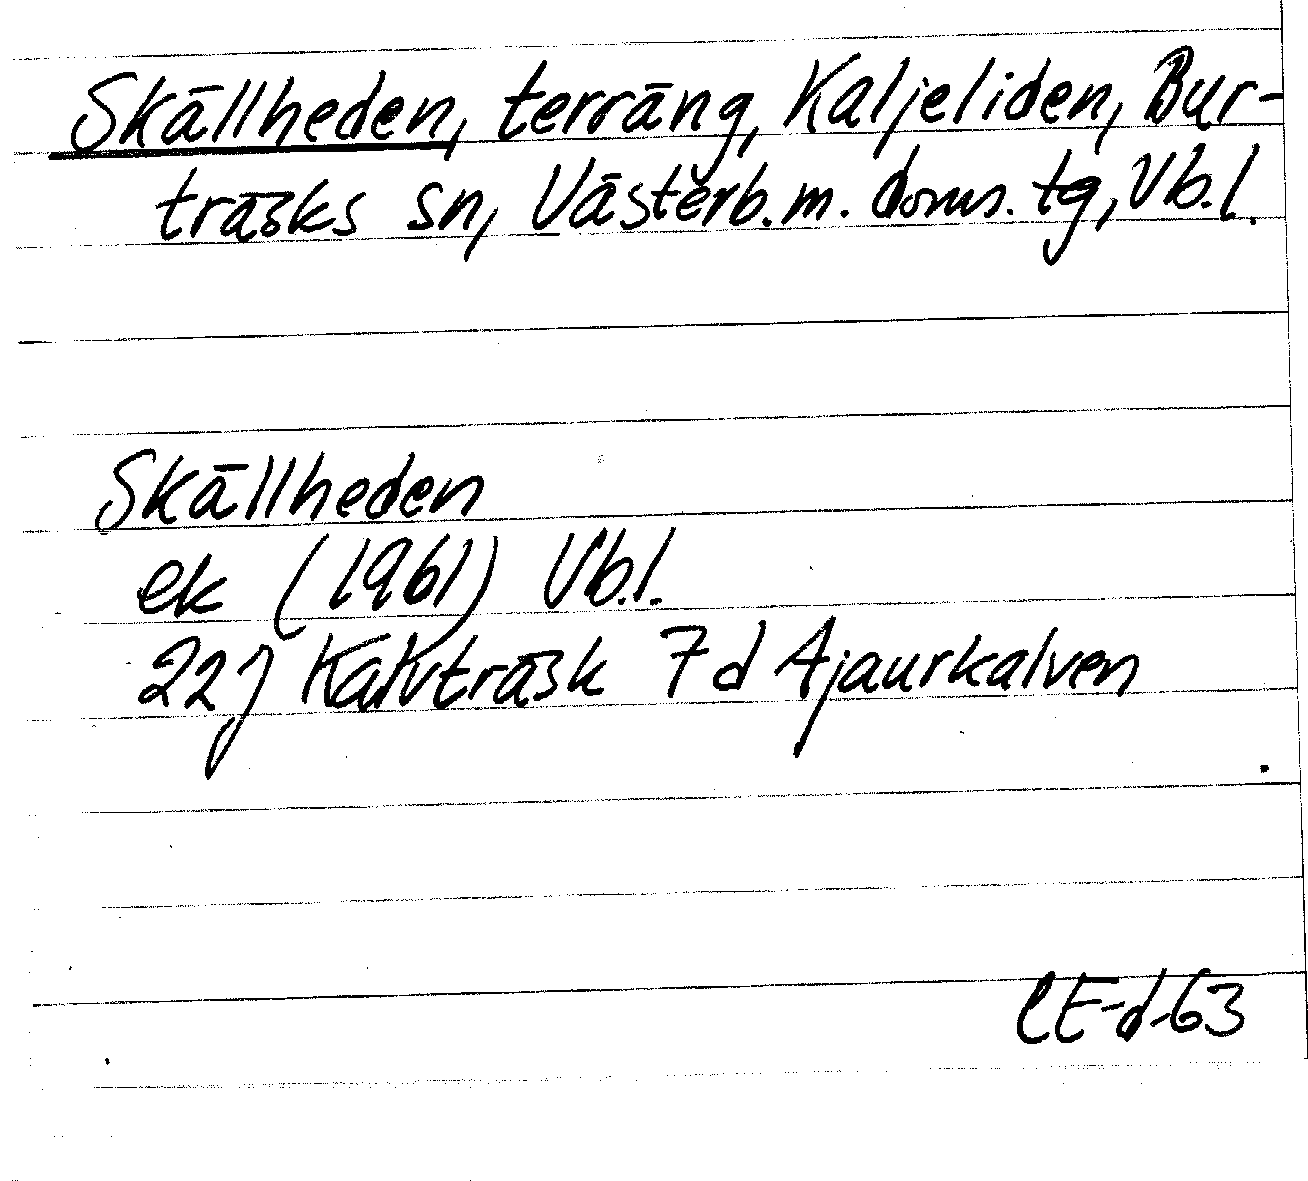 Skällheden, terräng, Kaljeliden, Bur-
träsks sn, Västerb. m. doms. tg, Vb.l.
Skällheden
ek (1961) Vb.l.
22J Kalvträsk 7d Ajaurkalven
CE-d-63